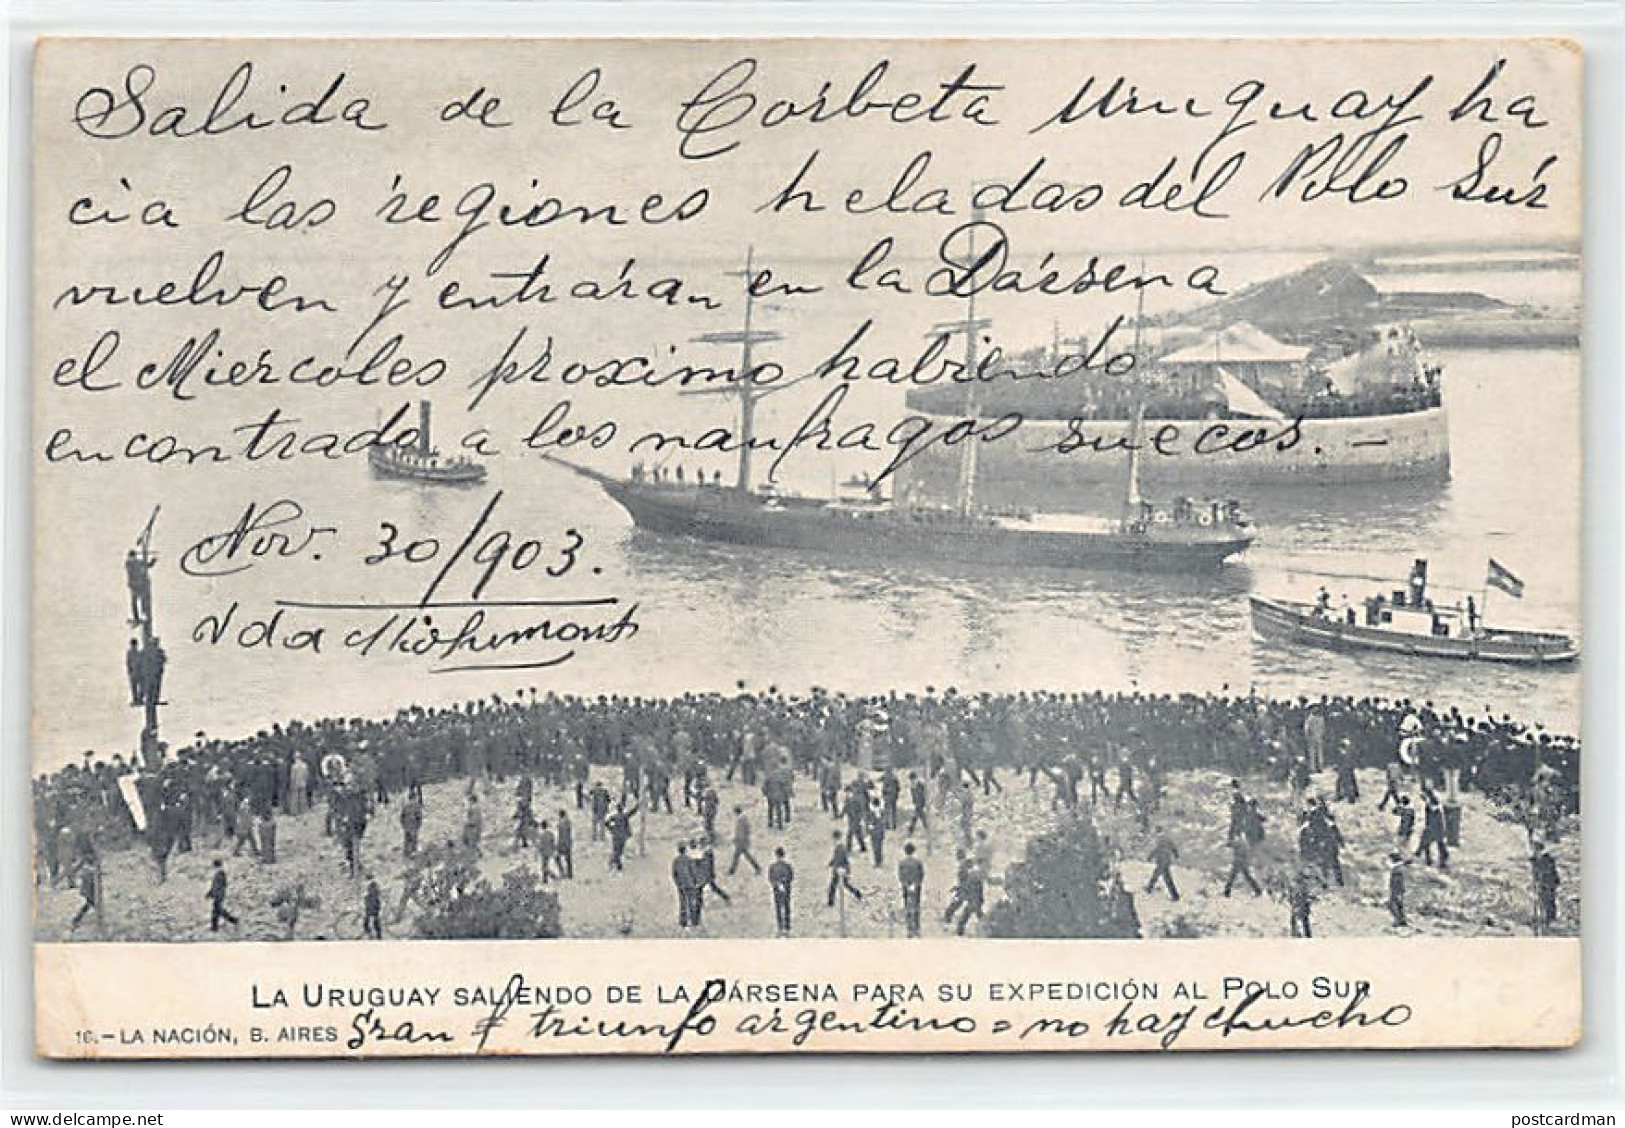 Salida de la Corbeta Uruguay ha
cia las regiones heladas del Polo Sur
vuelven y entrarán en la Dársena
el Miercoles próximo habiendo
encontrado a los naufragos suecos.—
Nov. 30/903.
Vda
LA URUGUAY SALIENDO DE LA DÁRSENA PARA SU EXPEDICIÓN AL POLO SUR
16.—LA NACIÓN, B. AIRES Gran triunfo argentino = no hay chucho
postcardman